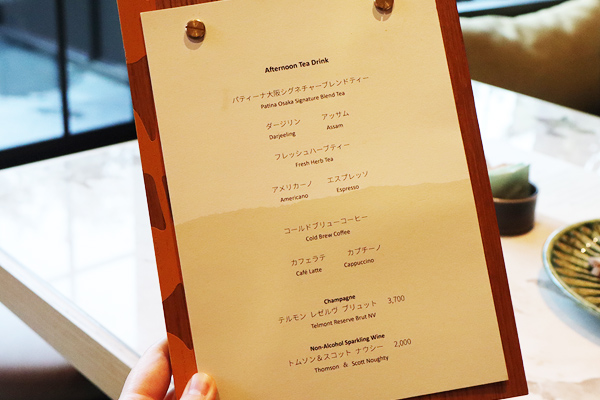 Afternoon Tea Drink
パティーナ大阪シグネチャーブレンドティー
Patina Osaka Signature Blend Tea
ダージリン アッサム
Darjeeling Assam
フレッシュハーブティー
Fresh Herb Tea
アメリカーノ エスプレッソ
Americano Espresso
コールドブリューコーヒー
Cold Brew Coffee
カフェラテ カプチーノ
Café Latte Cappuccino
Champagne
テルモン レゼルヴ ブリュット 3,700
Telmont Reserve Brut NV
Non-Alcohol Sparkling Wine
トムソン&スコット ナウシー 2,000
Thomson & Scott Noughty